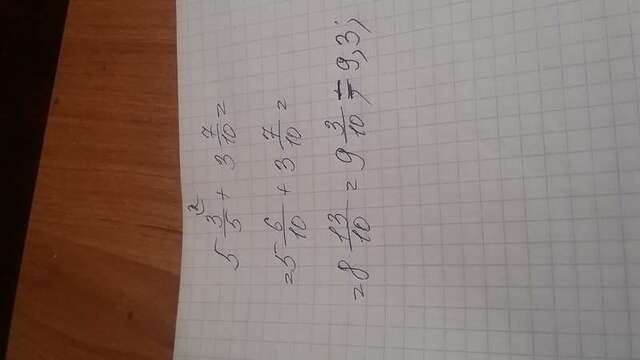 5 3/5 ² + 3 7/10 =
= 5 6/10 + 3 7/10 =
= 8 13/10 = 9 3/10 = 9,3;